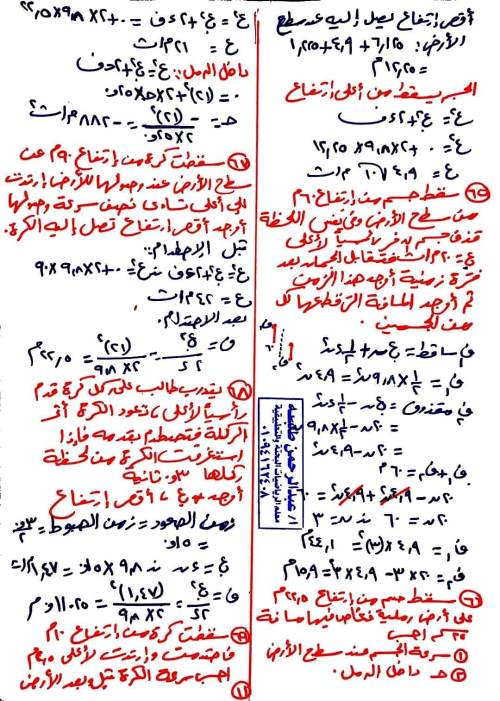 أقصى إرتفاع يصل إليه عند سطح
الأرض: ٦,١٢٥ + ٤,٩ + ١,٢٢٥
= ١٢,٢٥ م
الجسم يسقط من أعلى إرتفاع
ع² = ع.² + ٢ءف
ع² = ٠ + ٢×٩,٨×١٢,٢٥
ع = ٤,٩√١٠ م/ث
٦٥ سقط جسم من إرتفاع ٦٠ م
من سطح الأرض وفى نفس اللحظة
قذف جسم آخر رأسياً لأعلى
ع. = ٢٠ م/ث فتقابل الجسمان بعد
فترة زمنية أوجد هذا الزمن
ثم أوجد المسافة التى قطعها كل
من الجسمين
ف₁ ساقط = ع.ن + ½ءن²
ف₁ = ½×٩,٨ن² = ٤,٩ن²
ف₂ مقذوف = ع.ن - ½ءن²
= ٢٠ن - ½×٩,٨ن²
= ٢٠ن - ٤,٩ن²
ف₁ + ف₂ = ٦٠ م
٢٠ن - ٤,٩ن² + ٤,٩ن² = ٦٠
٢٠ن = ٦٠ ∴ ن = ٣
ف₁ = ٤,٩×(٣)² = ٤٤,١ م
ف₂ = ٢٠×٣ - ٤,٩×٣² = ١٥,٩ م
٦٦ سقط جسم من إرتفاع ٢٢,٥ م
على أرض رملية فغاص فيها مسافة
٢٥ سم احسب
١ سرعة الجسم عند سطح الأرض
٢ حـ داخل الرمل.
ا/ عبدالرحمن طلبه
معلم الرياضيات البحتة والتطبيقية
ع² = ع.² + ٢ءف = ٠ + ٢×٩,٨×٢٢,٥
ع = ٢١ م/ث
داخل الرمل: ع² = ع.² + ٢حـف
٠ = (٢١)² + ٢×حـ×٠,٢٥
حـ = -(٢١)² / ٢×٠,٢٥ = -٨٨٢ م/ث²
٦٧ سقطت كرة من إرتفاع ٩٠ م عن
سطح الأرض عند وصولها للأرض إرتدت
إلى أعلى تساوى نصف سرعة وصولها
أوجد أقصى إرتفاع تصل إليه الكرة.
قبل الإصطدام:
ع² = ع.² + ٢ءف ∴ ع² = ٠ + ٢×٩,٨×٩٠
ع = ٤٢ م/ث
بعد الاصطدام.
ف = ع.² / ٢ء = (٢١)² / ٢×٩,٨ = ٢٢,٥ م
٦٨ يتدرب طالب على ركل كرة قدم
رأسياً لأعلى، تعود الكرة أثر
الركلة فتصطدم بقدمه فإذا
استغرقت الكرة من لحظة
ركلها ٠,٣ ثانية
أوجد ع. ، أقصى إرتفاع
زمن الصعود = زمن الهبوط = ٠,٣ / ٢
= ٠,١٥
ع. = ءن = ٩,٨×٠,١٥ = ١,٤٧ م/ث
ف = ع.² / ٢ء = (١,٤٧)² / ٢×٩,٨ = ٠,١١٠٢٥ م
٦٩ سقطت كرة من إرتفاع ١٠ م
فاصطدمت وإرتدت لأعلى ٢,٥ م
احسب سرعة الكرة قبل وبعد الأرض
١١